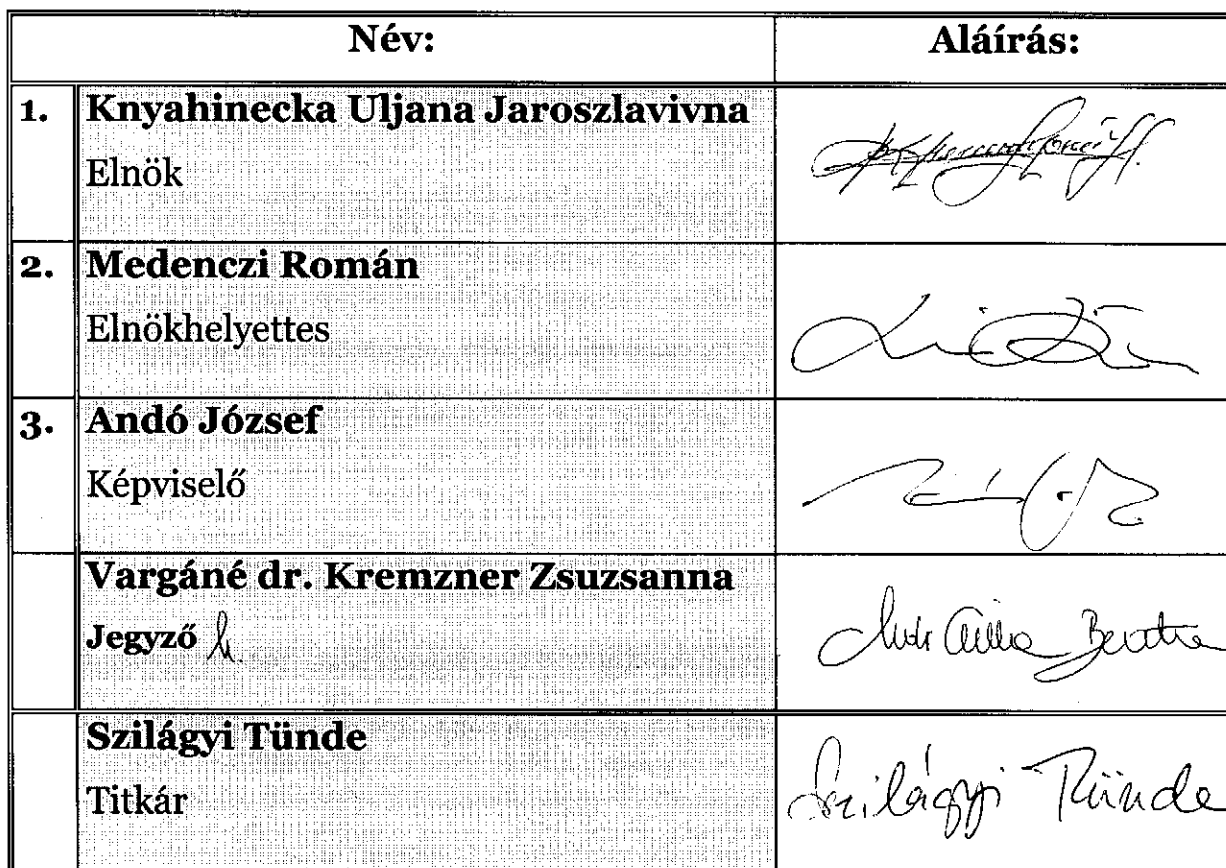 Név: Aláírás:
1. Knyahinecka Uljana Jaroszlavivna
Elnök
2. Medenczi Román
Elnökhelyettes
3. Andó József
Képviselő
Vargáné dr. Kremzner Zsuzsanna
Jegyző h.
Szilágyi Tünde Szilágyi Tünde
Titkár